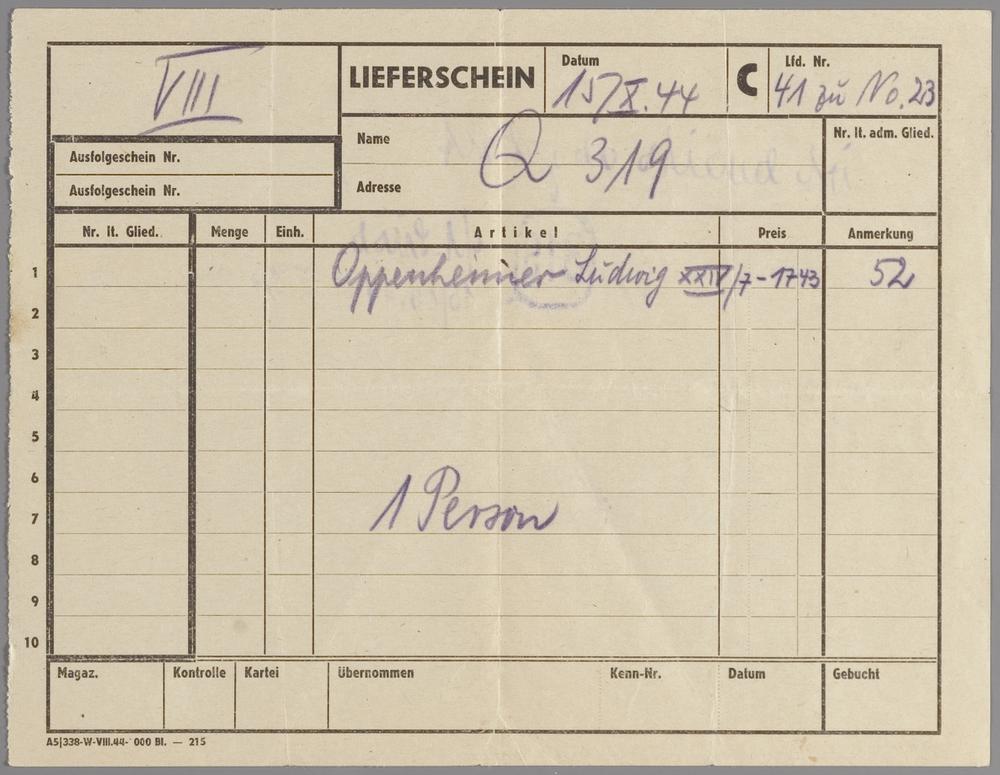 VIII
LIEFERSCHEIN
Datum
15/X.44
C
Lfd. Nr.
41 zu No. 23
Ausfolgeschein Nr.
Ausfolgeschein Nr.
Name
Adresse
Q 319
Nr. lt. adm. Glied.
Nr. lt. Glied. Menge Einh. Artikel Preis Anmerkung
1 Oppenheimer Ludwig XXIV/7-1743 52
2
3
4
5
6
7 1 Person
8
9
10
Magaz. Kontrolle Kartei Übernommen Kenn-Nr. Datum Gebucht
A5|338-W-VIII.44- 000 Bl. — 215